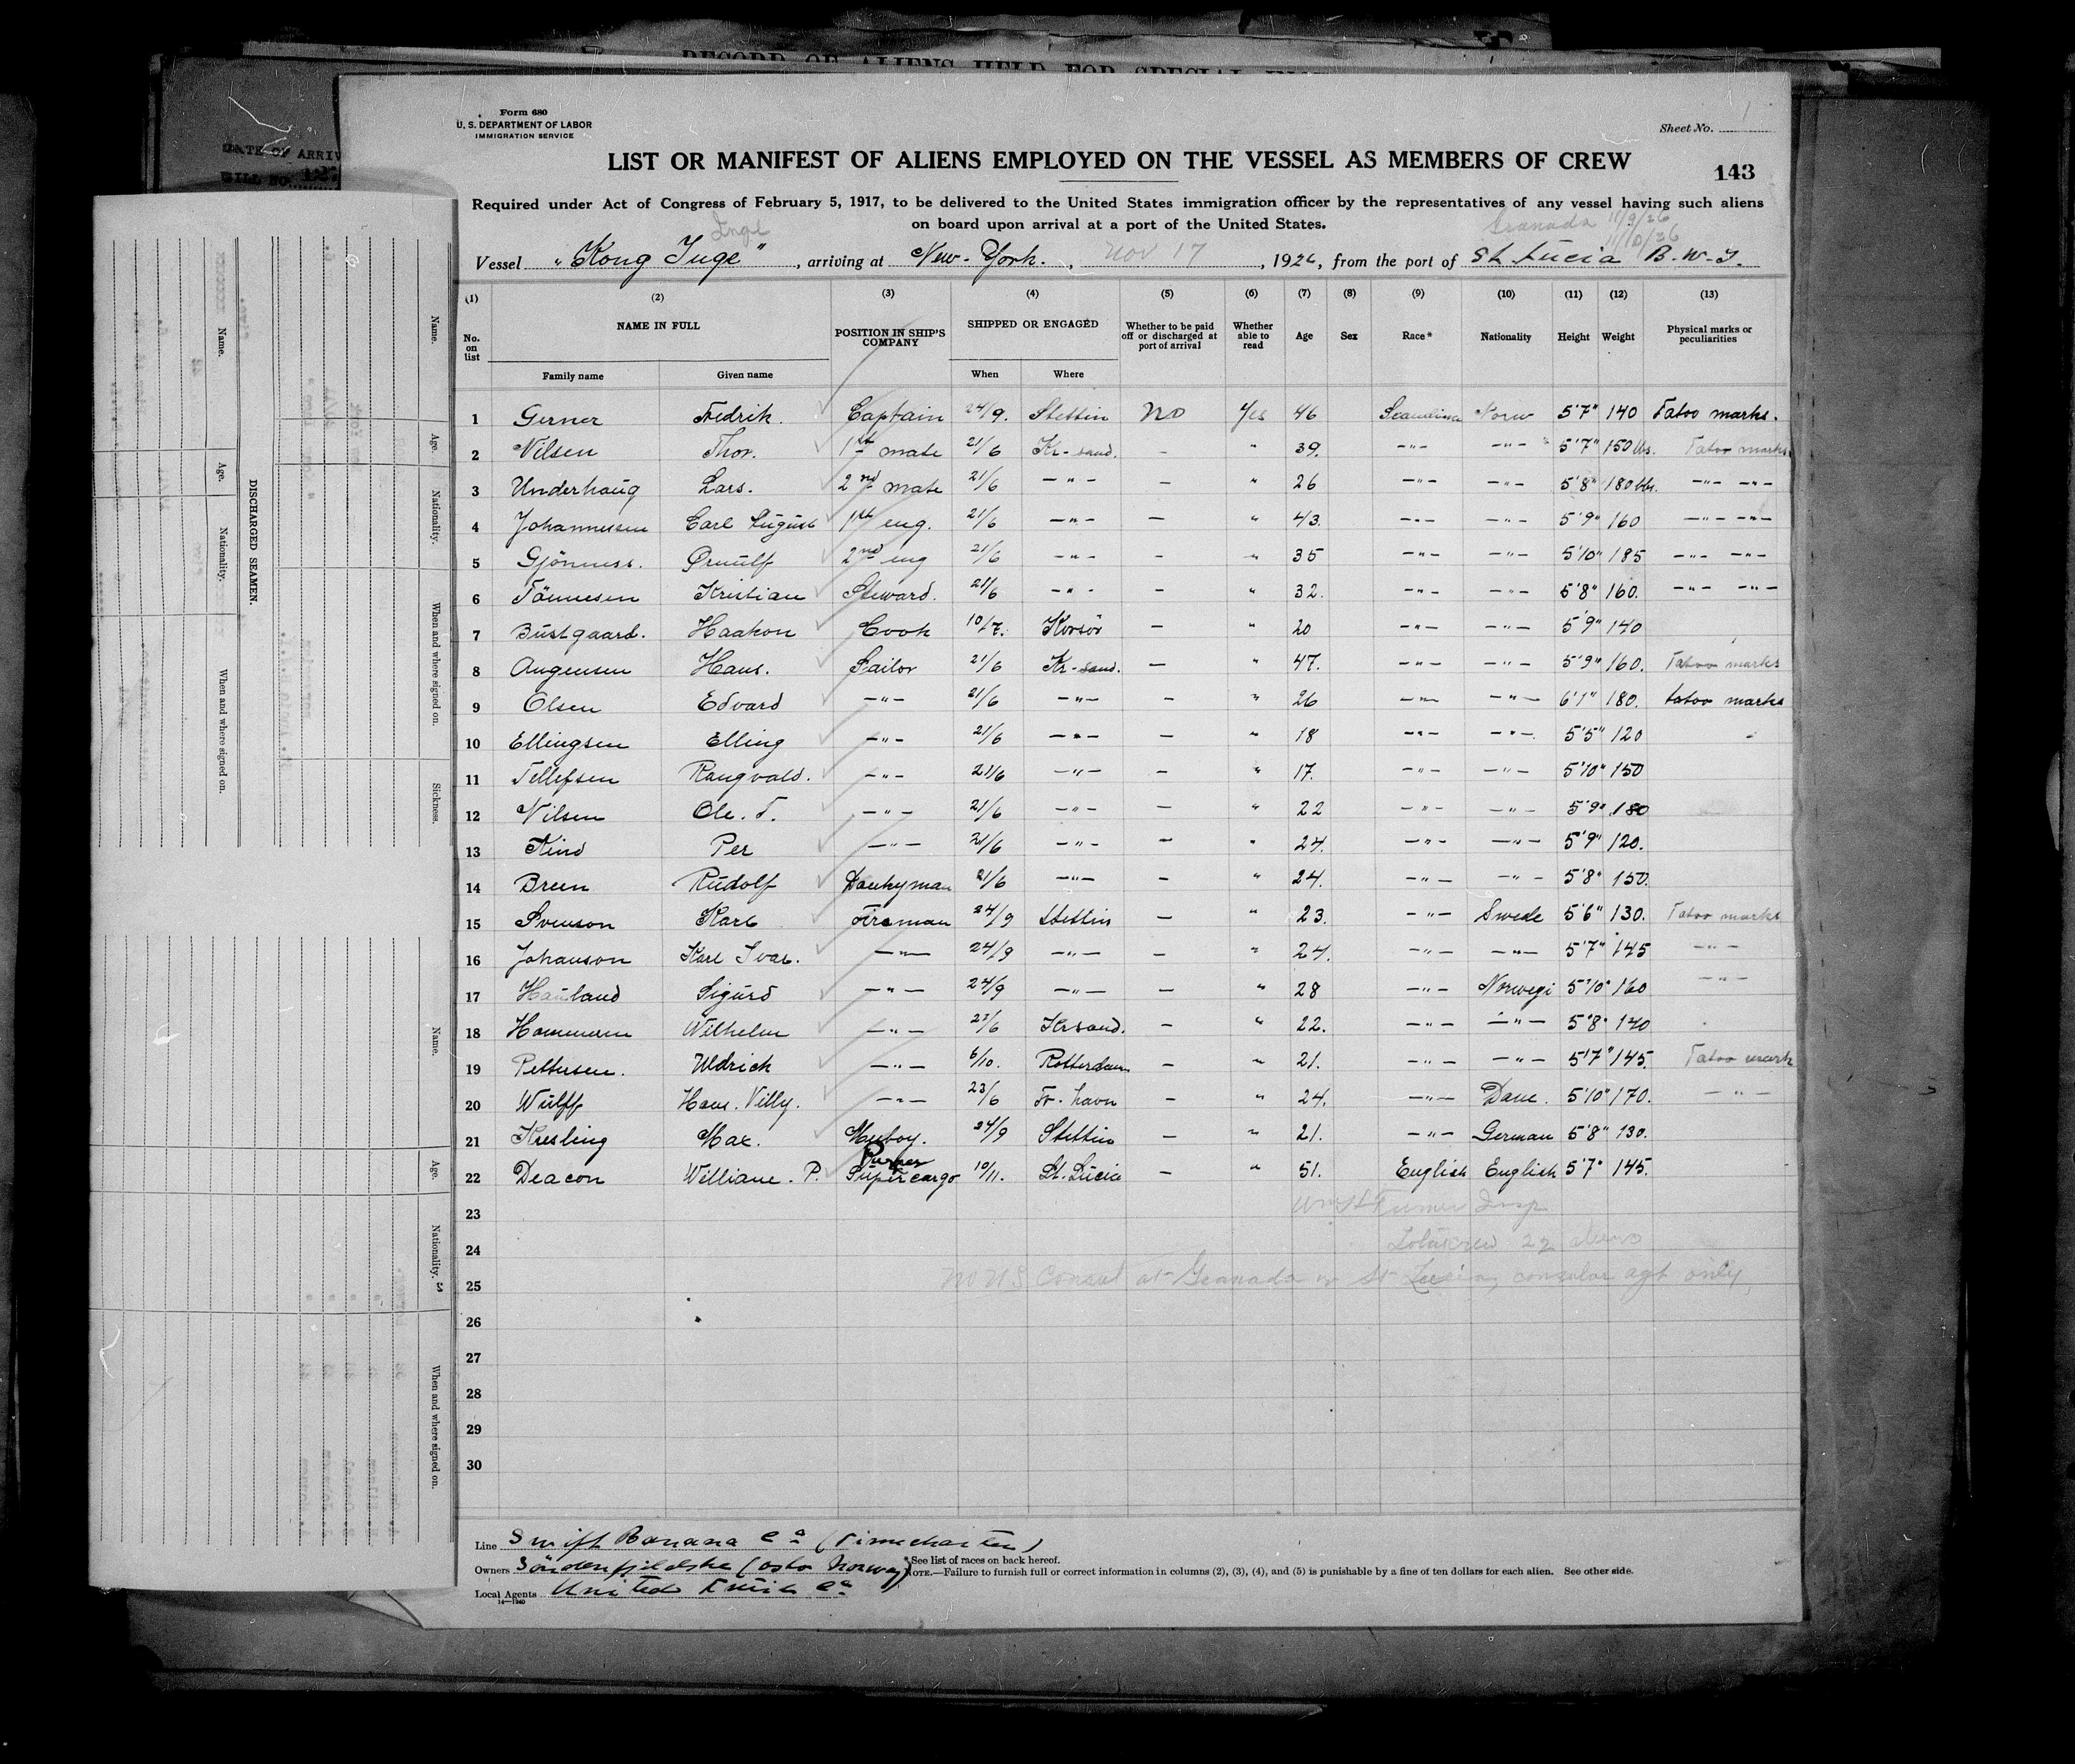 RECORD OF ALIENS HELD FOR SPECIAL
DATE OF ARRIV
Form 680
U. S. DEPARTMENT OF LABOR
IMMIGRATION SERVICE
Sheet No. 1
LIST OR MANIFEST OF ALIENS EMPLOYED ON THE VESSEL AS MEMBERS OF CREW
143
Required under Act of Congress of February 5, 1917, to be delivered to the United States immigration officer by the representatives of any vessel having such aliens
on board upon arrival at a port of the United States.
Inge
Granada 11/9/26
11/10/26
Vessel "Kong Inge", arriving at New-York., Nov 17, 1926, from the port of St Lucia B.W.I.
(1) (2) (3) (4) (5) (6) (7) (8) (9) (10) (11) (12) (13)
No. on list NAME IN FULL POSITION IN SHIP'S COMPANY SHIPPED OR ENGAGED Whether to be paid off or discharged at port of arrival Whether able to read Age Sex Race* Nationality Height Weight Physical marks or peculiarities
Family name Given name When Where
1 Gerner Fedrik. Captain 24/9. Stettin No Yes 46 Norw 5'7" 140 Tatoo marks.
2 Nilsen Thor. 1st mate 21/6 Kr-sand. - " 39. -"- -"- 5'7" 150 lbs. Tatoo marks
3 Underhaug Lars. 2nd mate 21/6 -"- - " 26 -"- -"- 5'8" 180 lbs. -"- -"-
4 Johannesen Carl August 1st eng. 21/6 -"- - " 43. -"- -"- 5'9" 160 -"- -"-
5 Ørnulf 2nd eng 21/6 -"- - " 35 -"- -"- 5'10" 185 -"- -"-
6 Tönnesen Kristian Steward. 21/6 -"- - " 32. -"- -"- 5'8" 160. -"- -"-
7 Bustgaard. Haakon Cook 10/7. Korsör - " 20 -"- -"- 5'9" 140
8 Augensen Hans. Sailor 21/6 Kr-sand. - " 47. -"- -"- 5'9" 160. Tatoo marks
9 Olsen Edvard -"- 21/6 -"- - " 26 -"- -"- 6'1" 180. tatoo marks
10 Ellingsen Elling -"- 21/6 -"- - " 18 -"- -"- 5'5" 120
11 Tellefsen Rangvald. -"- 21/6 -"- - " 17. -"- -"- 5'10" 150
12 Nilsen Ole. T. -"- 21/6 -"- - " 22 -"- -"- 5'9" 180
13 Kind Per -"- 21/6 -"- - " 24. -"- -"- 5'9" 120.
14 Breen Rudolf Donkyman 21/6 -"- - " 24. -"- -"- 5'8" 150.
15 Svenson Karl Fireman 24/9 Stettin - " 23. -"- Swede 5'6" 130. Tatoo marks
16 Johanson Karl Ivar. -"- 24/9 -"- - " 24. -"- -"- 5'7" 145 -"-
17 Hauland Sigurd -"- 24/9 -"- - " 28 -"- Norwegi 5'10" 160 -"-
18 Wilhelm -"- Krsand. - " 22. -"- -"- 5'8" 140
19 Pettersen. Uldrick -"- 6/10. Rotterdam - " 21. -"- -"- 5'7" 145. Tatoo mark
20 Wulff Hans. Villy. -"- 23/6 Fr. havn - " 24. -"- Dane. 5'10" 170. -"-
21 Kresling Max. Messboy. 24/9 Stettin - " 21. -"- German 5'8" 130.
Purser
22 Deacon William. P. Supercargo 10/11. St. Lucia - " 51. English English 5'7" 145.
23 Turner Insp
24 Total crew 22 aliens
25 No US Consul at Granada or St Lucia, consular agt only.
26
27
28
29
30
Line Swift Banana Co (Timecharter)
Owners Söndenfjeldske (Oslo Norway)
Local Agents United Fruit Co
14—1940
*See list of races on back hereof.
NOTE.—Failure to furnish full or correct information in columns (2), (3), (4), and (5) is punishable by a fine of ten dollars for each alien. See other side.
DISCHARGED SEAMEN.
Name. Age. Nationality. When and where signed on. Sickness.
Name. Age. Nationality. When and where signed on.
Name. Age. Nationality. When and where signed on.